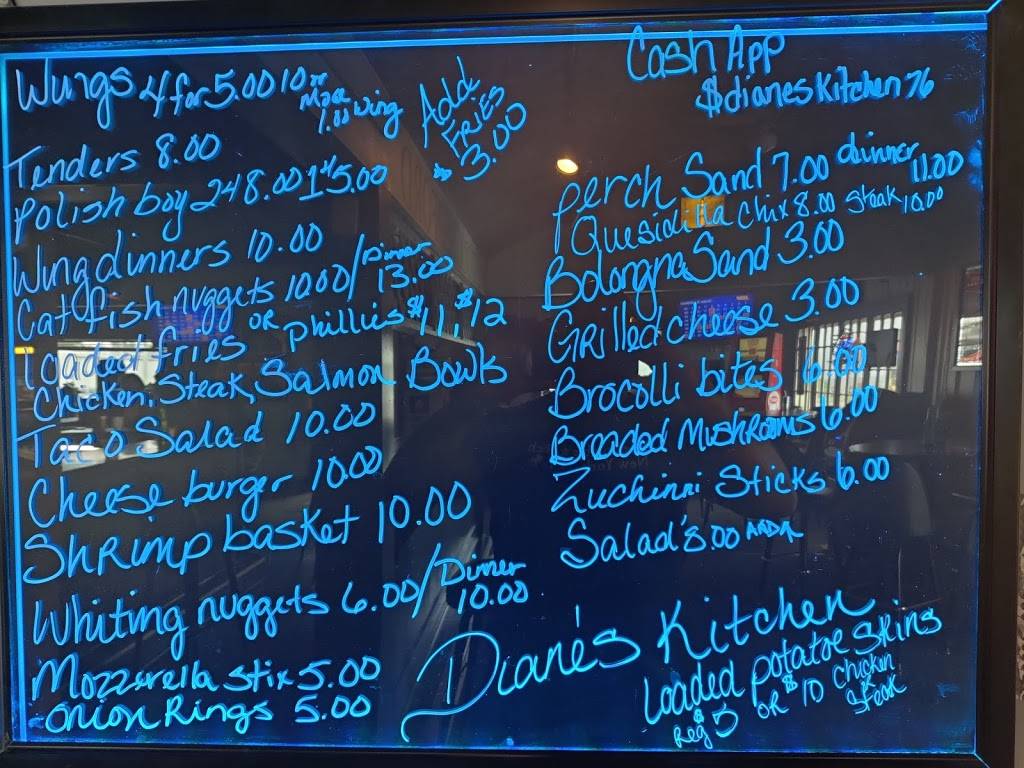 Wings 4 for 5.00 10 or
More
1.00 wing
Add
FRIES
3.00
Tenders 8.00
Polish boy 8.00 15.00
Wing dinners 10.00
Cat fish nuggets 10.00/Dinner
13.00
loaded fries OR phillies $11, $12
Chicken, Steak, Salmon Bowls
Taco Salad 10.00
Cheese burger 10.00
SHRimp basket 10.00
Whiting nuggets 6.00/Dinner
10.00
Mozzarella stix 5.00
Onion Rings 5.00
Cash App
$dianesKitchen76
perch Sand 7.00 dinner
11.00
Quesidilla Chix 8.00 Steak 10.00
Bolongna Sand 3.00
Grilled cheese 3.00
Brocolli bites 6.00
Breaded MushRooms 6.00
Zuchinni Sticks 6.00
Salad 8.00
Diane's Kitchen
loaded potatoe skins
Reg $5 OR $10 Chicken
Steak